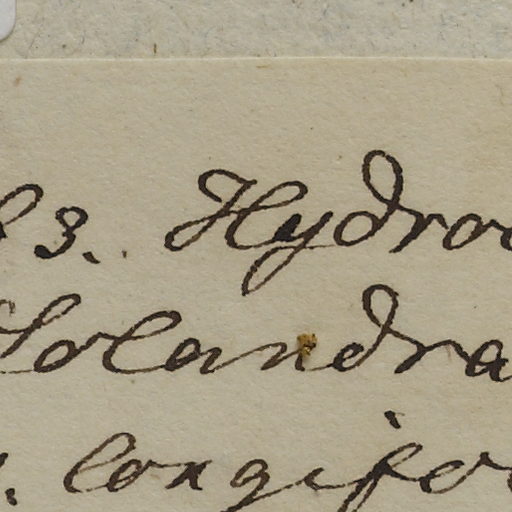 83. Hydroc
Solandra
. longifo